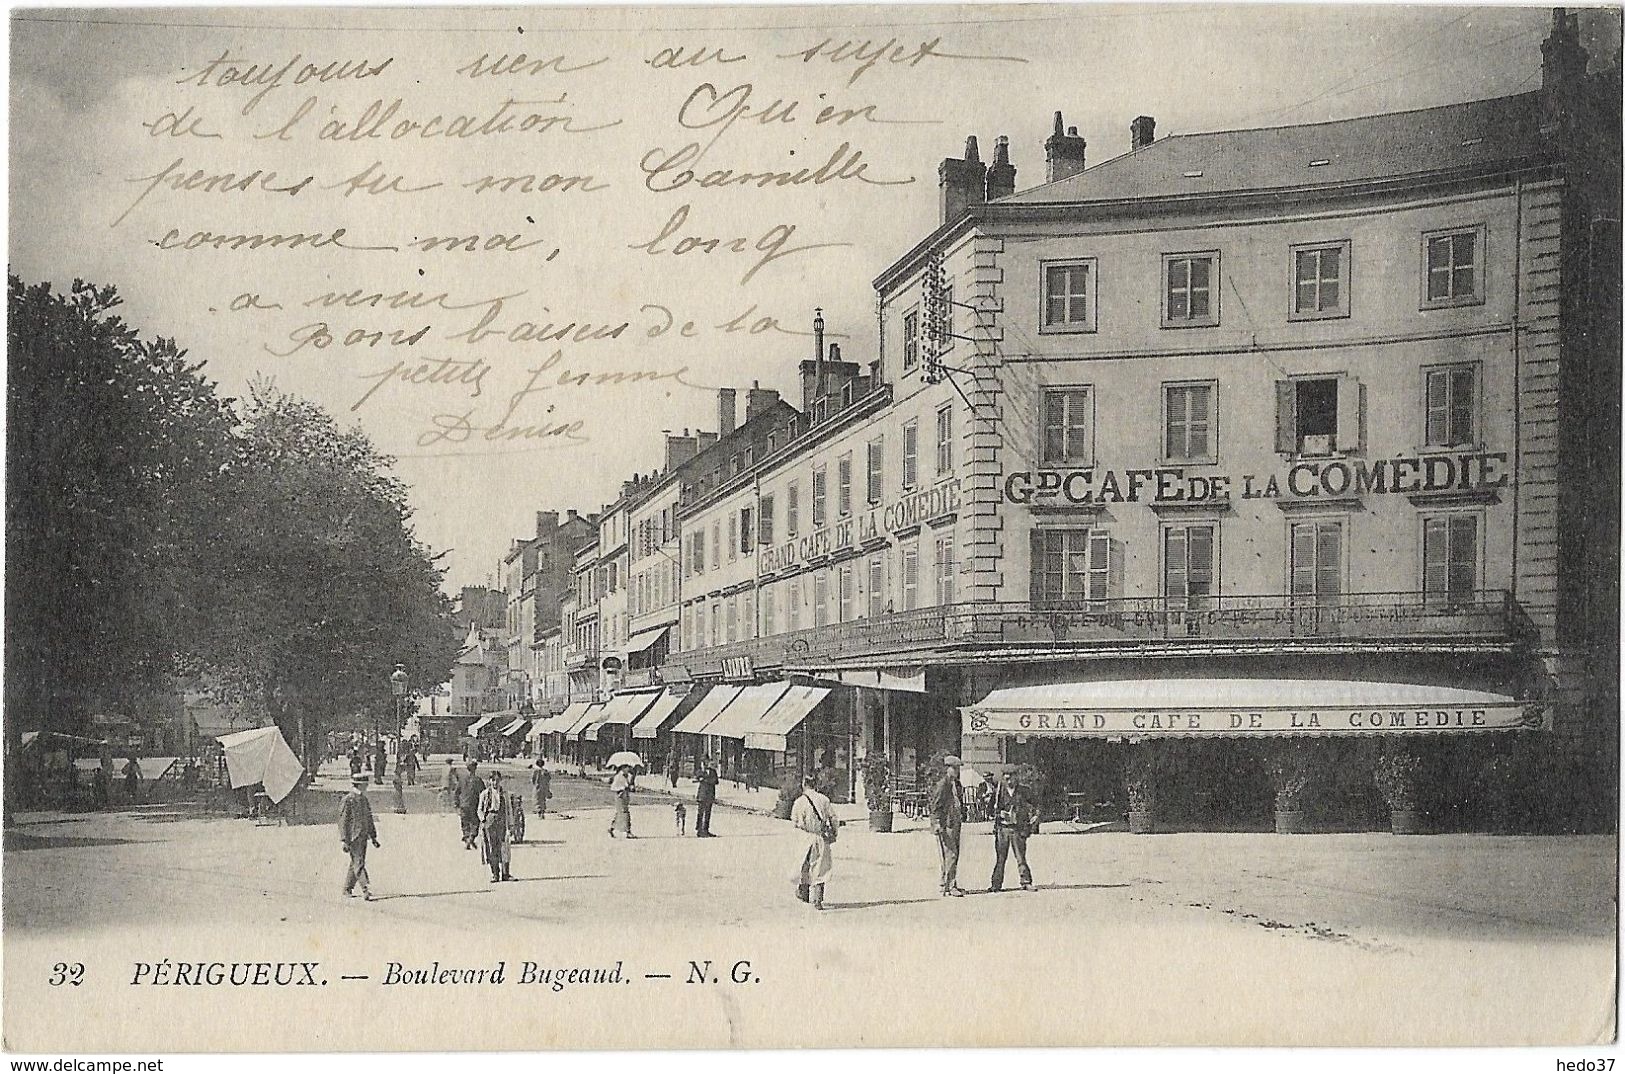 toujours rien au sujet
de l'allocation Qu'en
penses tu mon Camille
comme moi, long
a venir
Bons baisers de la
petite femme
Denise
GD CAFE DE LA COMÉDIE
GRAND CAFE DE LA COMEDIE
GRAND CAFE DE LA COMEDIE
32 PÉRIGUEUX. — Boulevard Bugeaud. — N. G.
hedo37